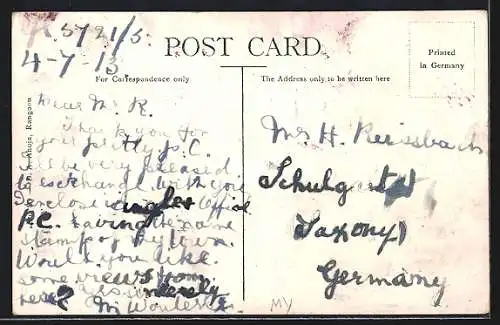 5721/5
4-7-13
POST CARD.
For Correspondence only
The Address only to be written here
Printed
in Germany
Rangoon
Dear Mr R.
Thank you for
your pretty p.c.
be very pleased
to exchange with you
I enclose
P.C. having the name
stamp of my town.
Would you like
some views from
here
Mr H. Reissbach
Schulg
Saxony
Germany
MY